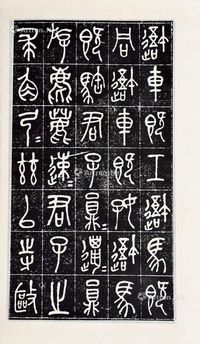 避車既工避馬既
同避車既好避馬
既君子員邋員
斿麀鹿速君子之
求角弓茲以寺敺